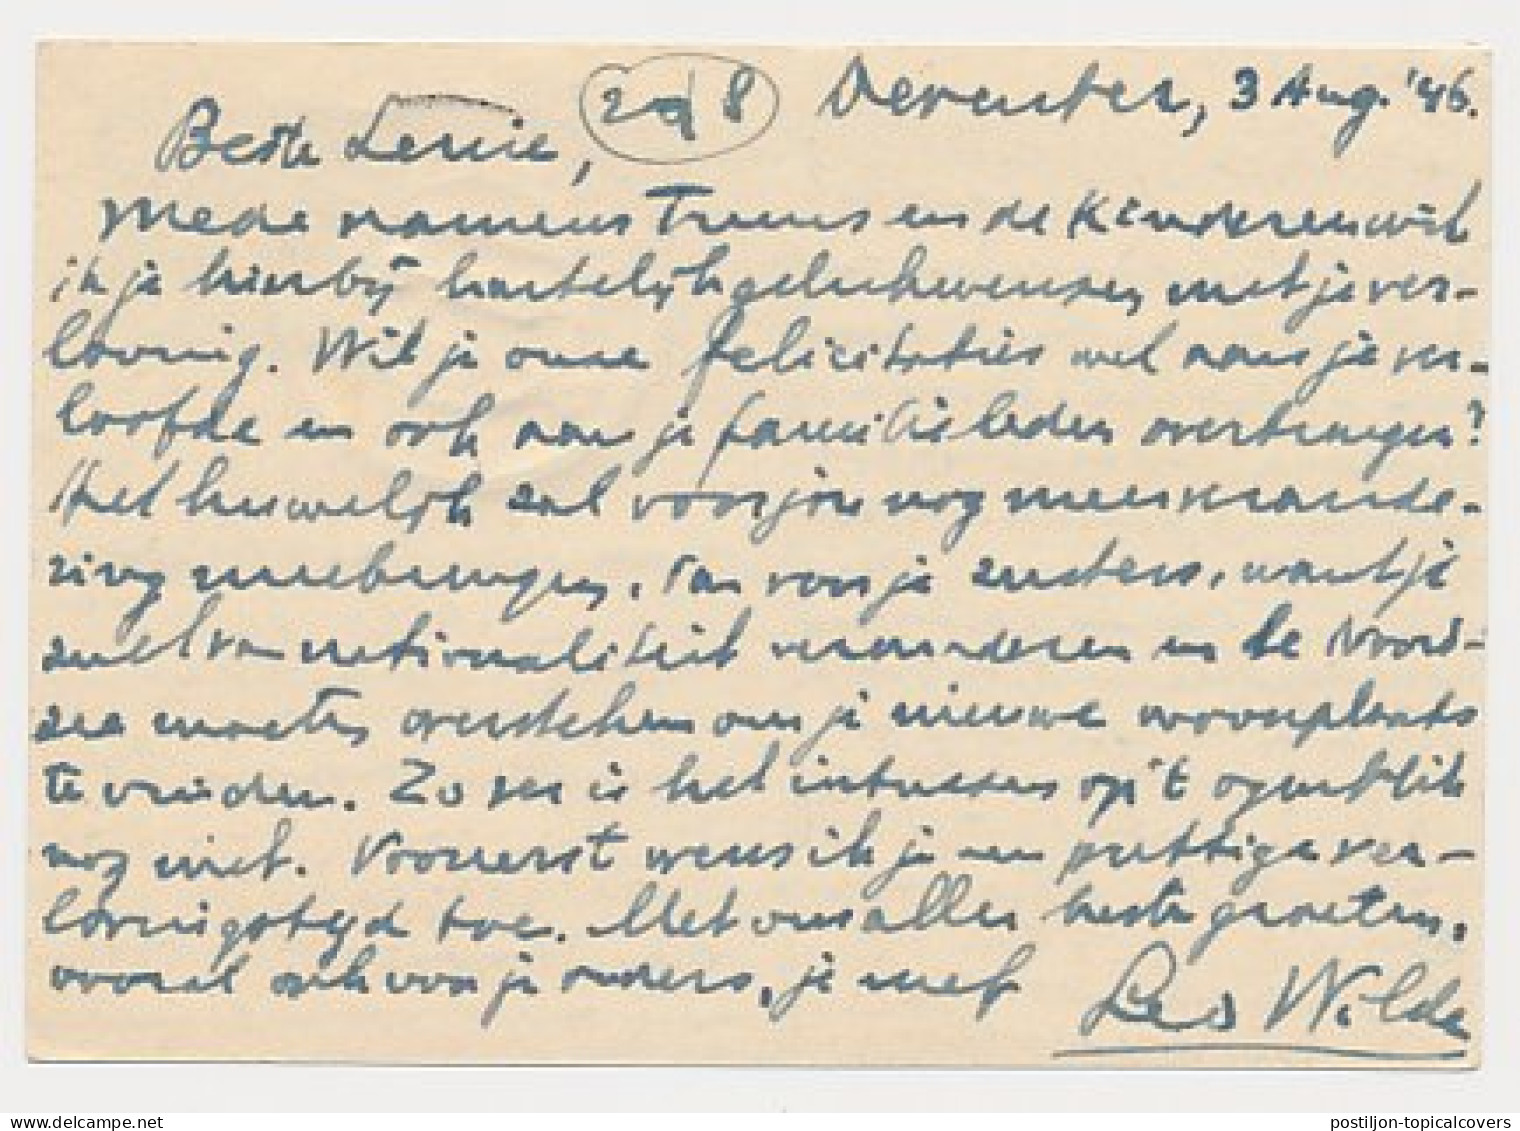 Deventer, 3 Aug. '46.
Beste Lenie,
Mede namens Truus en de Kinderen wil
ik je hierbij hartelijk gelukwenschen met je ver-
loving. Wil je onze felicitaties wel aan je ver-
loofde en ook aan je familieleden overbrengen?
Het huwelijk zal voor jou nog meer verande-
ring meebrengen, dan voor je zusters, want je
zult van nationaliteit veranderen en de Noord-
zee moeten oversteken om je nieuwe woonplaats
te vinden. Zo ver is het intusschen op 't ogenblik
nog niet. Vooreerst wens ik je een prettige ver-
lovingstijd toe. Met ons aller beste groeten,
vooral ook voor je ouders, je neef
Wilde
postiljon-topicalcovers